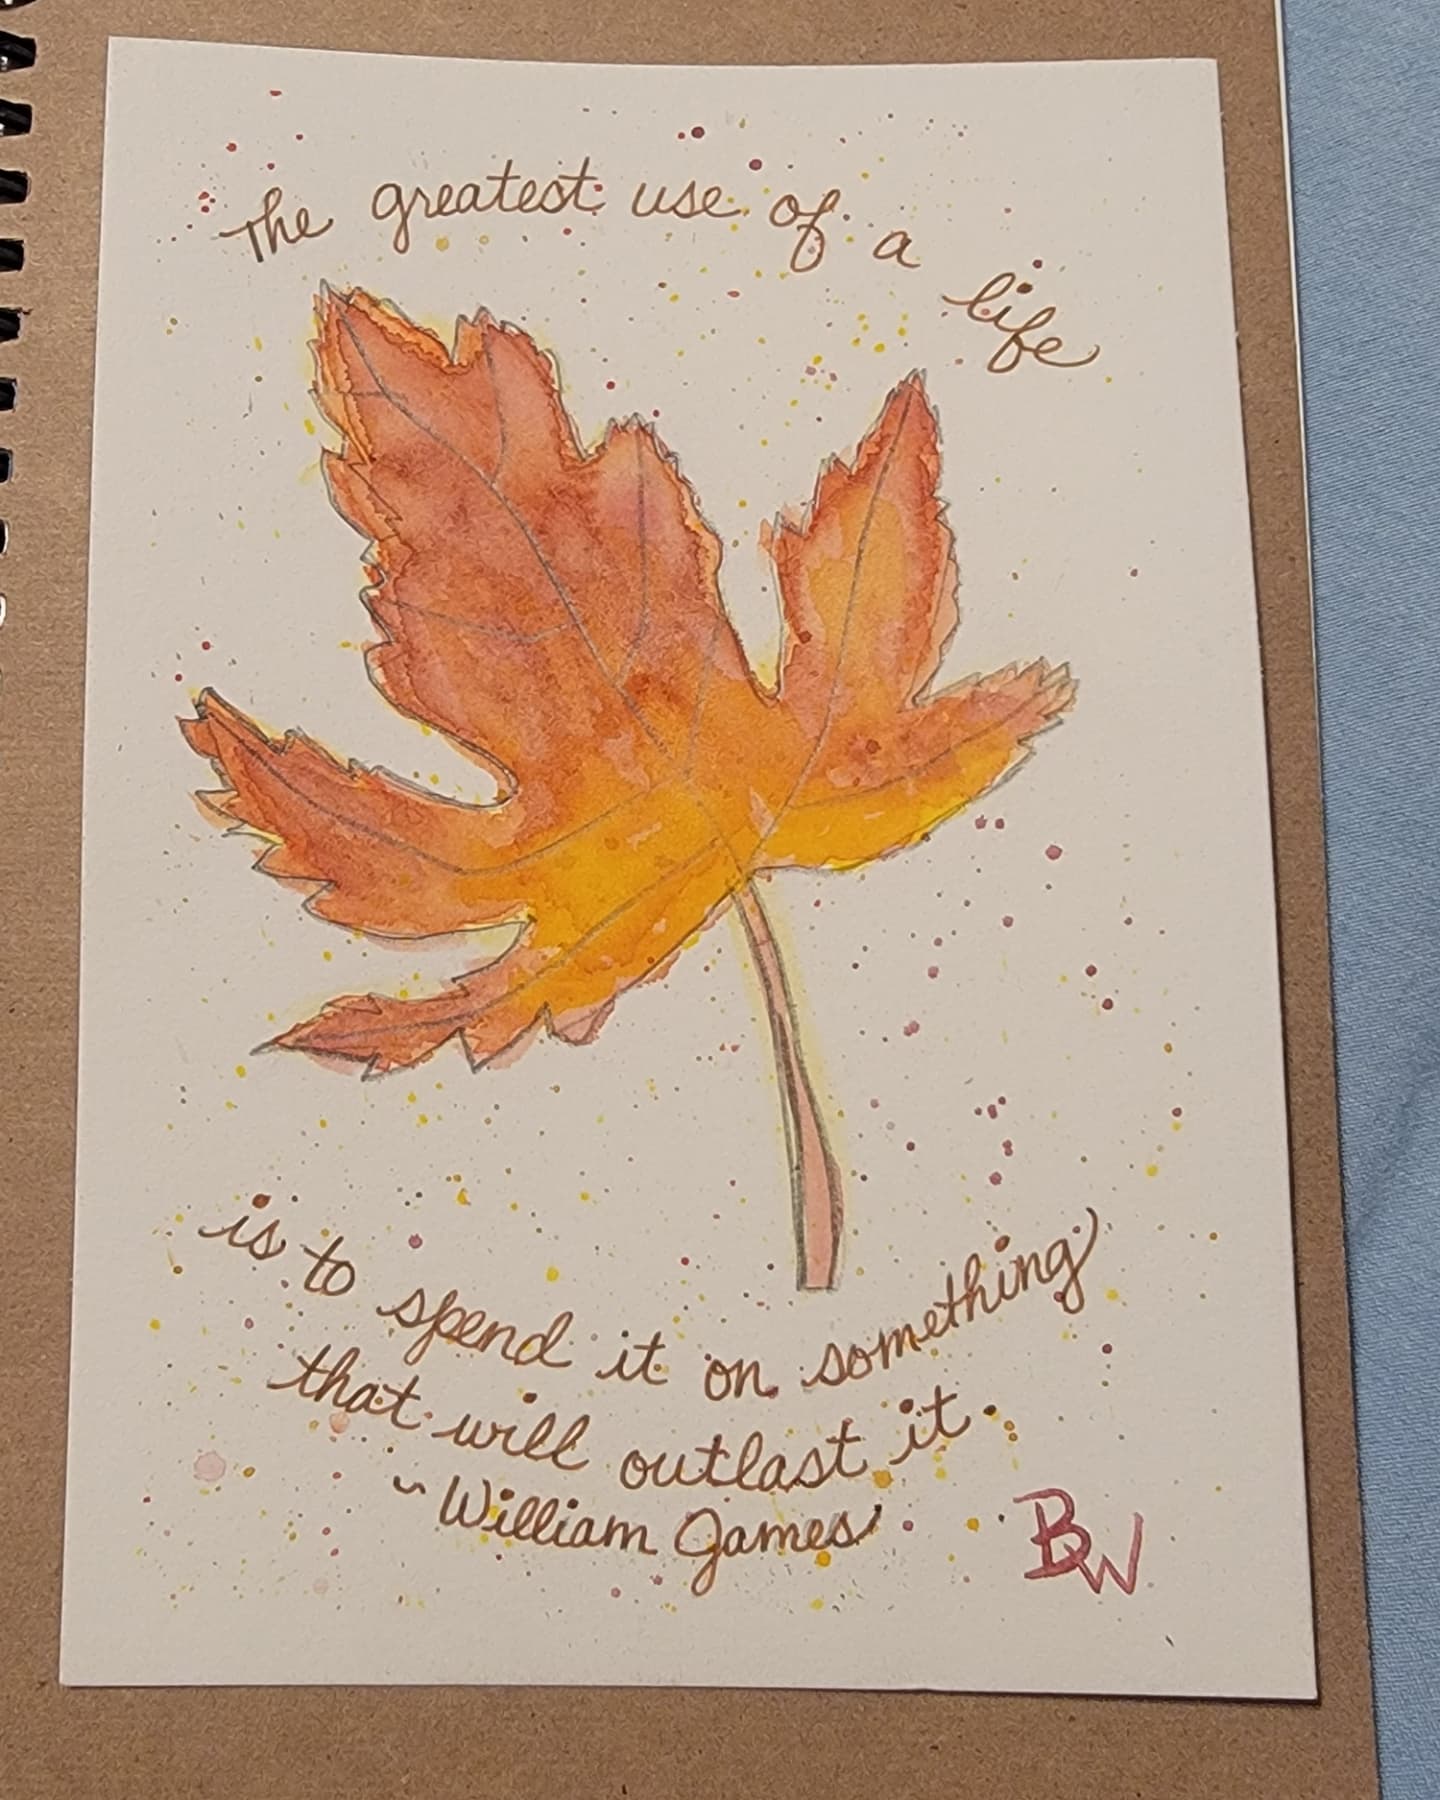 The greatest use of a life
is to spend it on something
that will outlast it.
~ William James
BW